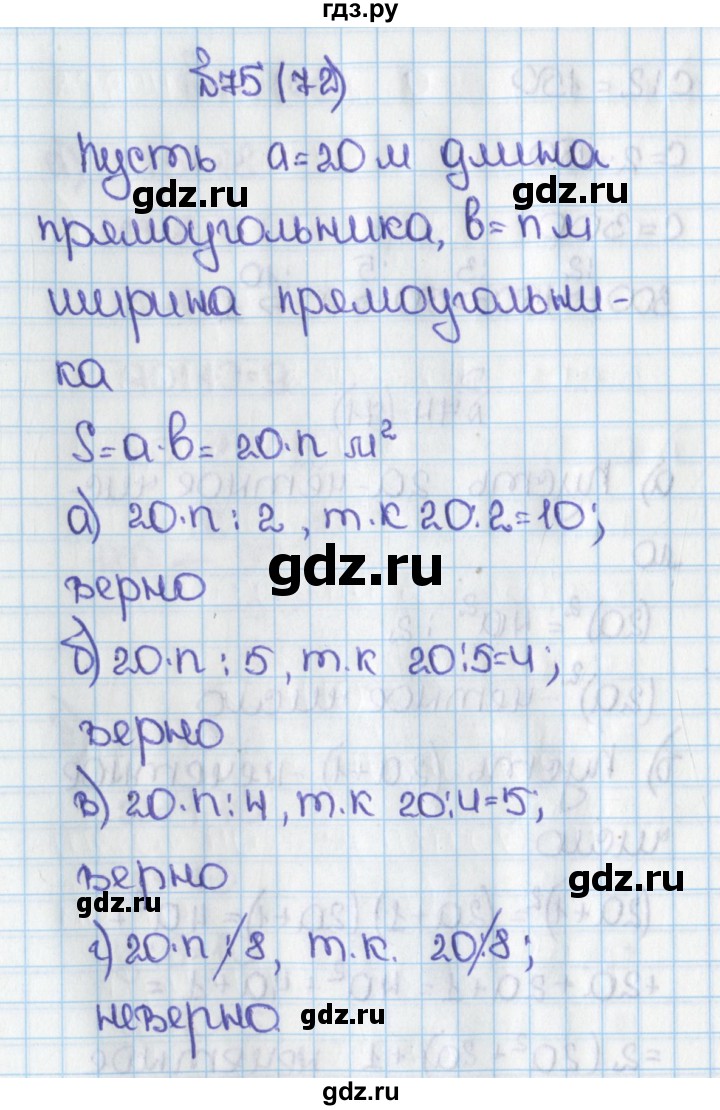 гдз.ру
№75 (72)
Пусть a=20 м длина
gdz.ru
gdz.ru
прямоугольника, b=n м
ширина прямоугольни-
ка
S=a·b= 20·n м²
а) 20·n⋮2, т.к 20:2=10;
gdz.ru
верно
б) 20·n⋮5, т.к 20:5=4;
верно
в) 20·n⋮4, т.к 20:4=5;
верно
gdz.ru
gdz.ru
г) 20·n⋮̸8, т.к. 20⋮̸8;
неверно
gdz.ru
gdz.ru